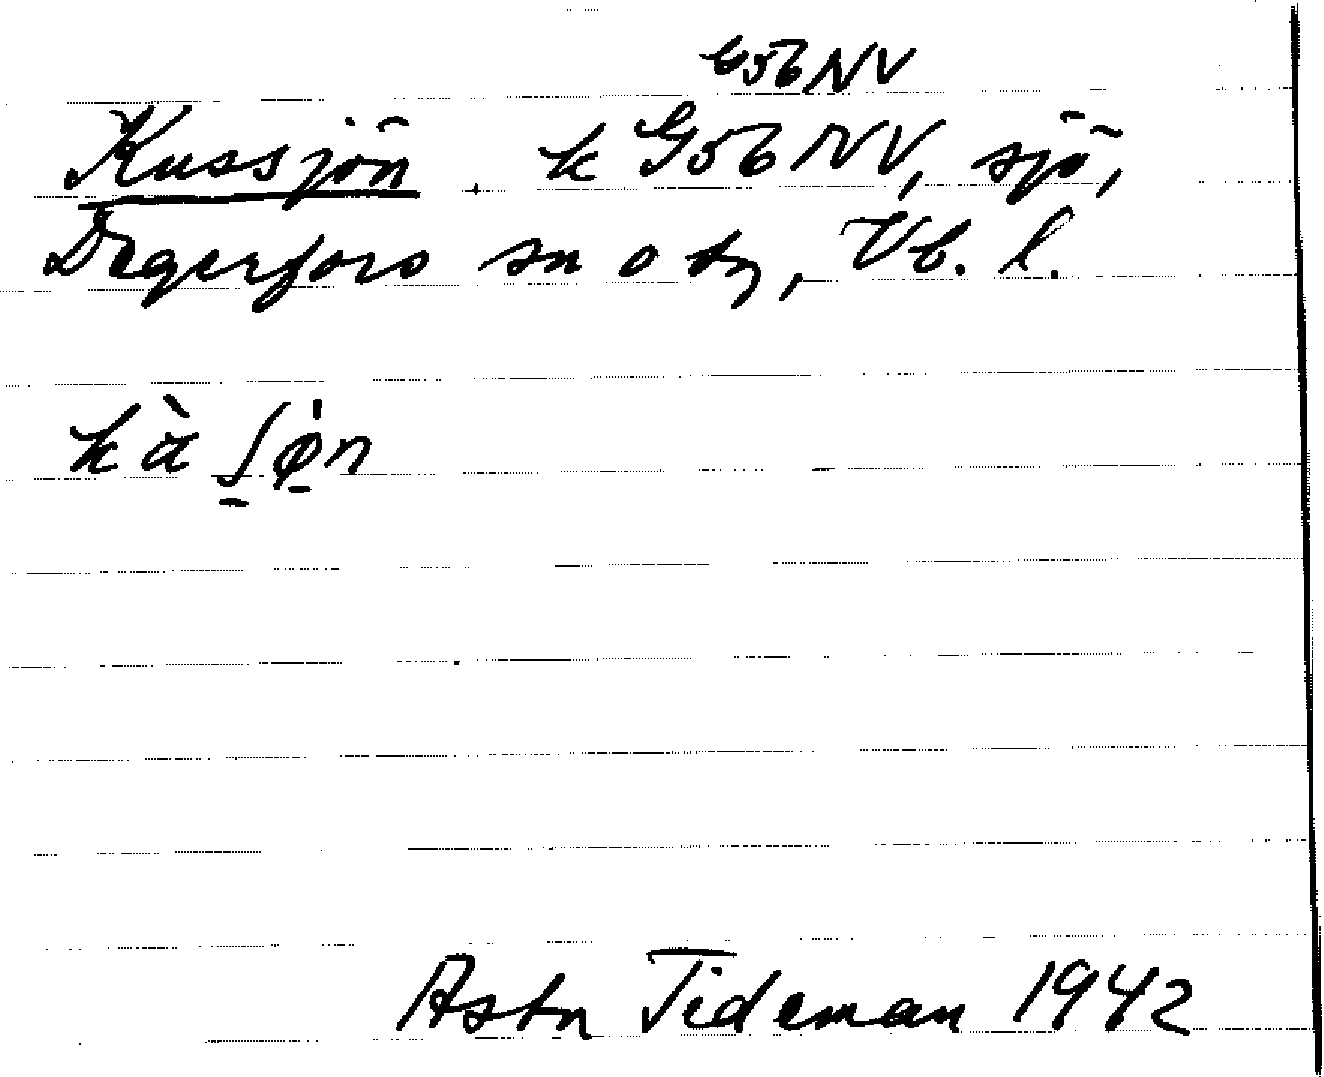 G56NV
Kussjön k G56NV, sjö,
Degerfors sn o tg, Vb. l.
kà ʃø̣̀n
Astn Tideman 1942